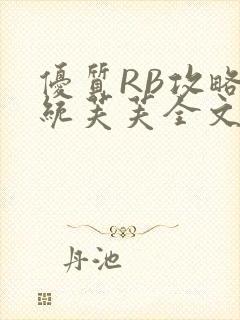 優質RB攻略
統芙芙全文
丹池